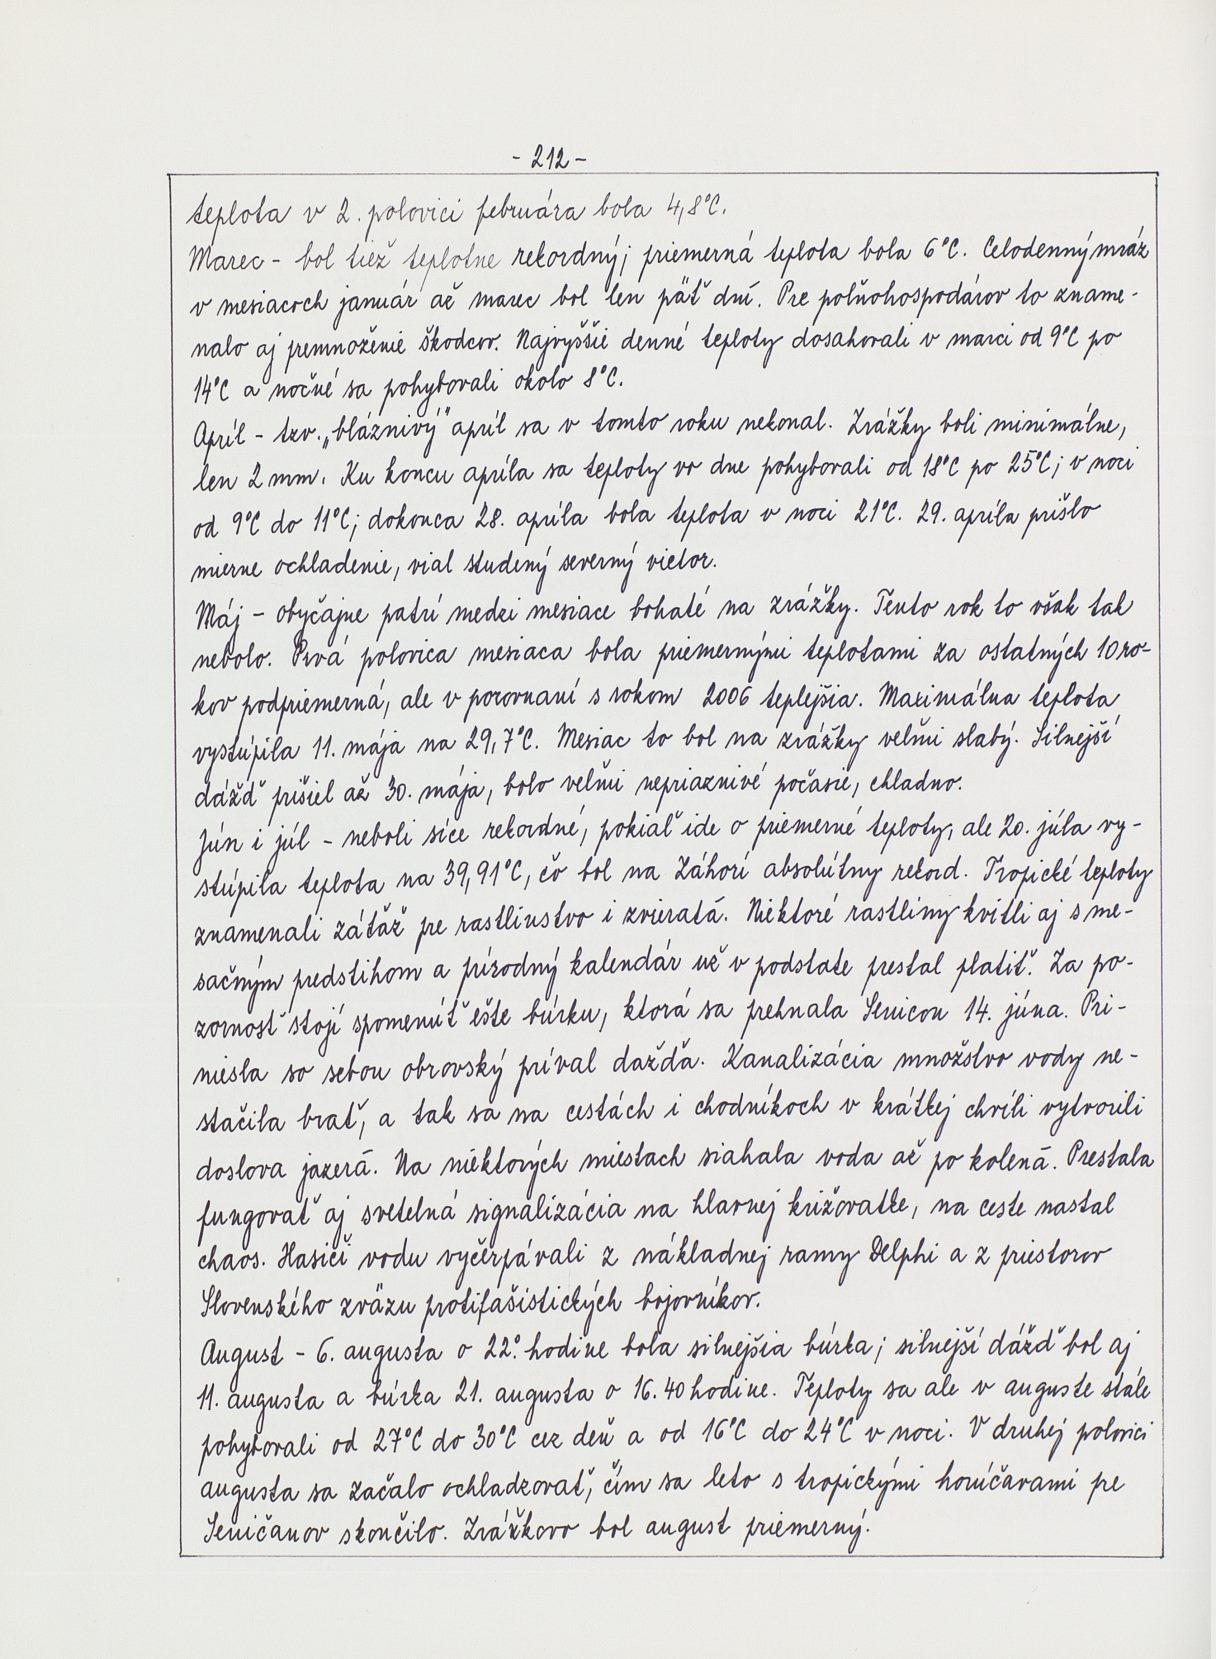 - 212 -
teplota v 2. polovici februára bola 4,8°C.
Marec - bol tiež teplotne rekordný; priemerná teplota bola 6°C. Celodenný mráz
v mesiacoch január až marec bol len päť dní. Pre poľnohospodárov to zname-
nalo aj premnoženie škodcov. Najvyššie denné teploty dosahovali v marci od 9°C po
14°C a nočné sa pohybovali okolo 8°C.
Apríl - tzv. „bláznivý" apríl sa v tomto roku nekonal. Zrážky boli minimálne,
len 2 mm. Ku koncu apríla sa teploty vo dne pohybovali od 18°C po 25°C; v noci
od 9°C do 11°C; dokonca 28. apríla bola teplota v noci 21°C. 29. apríla prišlo
mierne ochladenie, vial studený severný vietor.
Máj - obyčajne patrí medzi mesiace bohaté na zrážky. Tento rok to však tak
nebolo. Prvá polovica mesiaca bola priemernými teplotami za ostatných 10 ro-
kov podpriemerná, ale v porovnaní s rokom 2006 teplejšia. Maximálna teplota
vystúpila 11. mája na 29,7°C. Mesiac to bol na zrážky veľmi slabý. Silnejší
dážď prišiel až 30. mája, bolo veľmi nepriaznivé počasie, chladno.
Jún i júl - neboli síce rekordné, pokiaľ ide o priemerné teploty, ale 20. júla vy-
stúpila teplota na 39,91°C, čo bol na Záhorí absolútny rekord. Tropické teploty
znamenali záťaž pre rastlinstvo i zvieratá. Niektoré rastliny kvitli aj s me-
sačným predstihom a prírodný kalendár už v podstate prestal platiť. Za po-
zornosť stojí spomenúť ešte búrku, ktorá sa prehnala Senicou 14. júna. Pri-
niesla so sebou obrovský príval dažďa. Kanalizácia množstvo vody ne-
stačila brať, a tak sa na cestách i chodníkoch v krátkej chvíli vytvorili
doslova jazerá. Na niektorých miestach siahala voda až po kolená. Prestala
fungovať aj svetelná signalizácia na hlavnej križovatke, na ceste nastal
chaos. Hasiči vodu vyčerpávali z nákladnej rampy Delphi a z priestorov
Slovenského zväzu protifašistických bojovníkov.
August - 6. augusta o 22. hodine bola silnejšia búrka; silnejší dážď bol aj
11. augusta a búrka 21. augusta o 16.40 hodine. Teploty sa ale v auguste stále
pohybovali od 27°C do 30°C cez deň a od 16°C do 24°C v noci. V druhej polovici
augusta sa začalo ochladzovať, čím sa leto s tropickými horúčavami pre
Seničanov skončilo. Zrážkovo bol august priemerný.